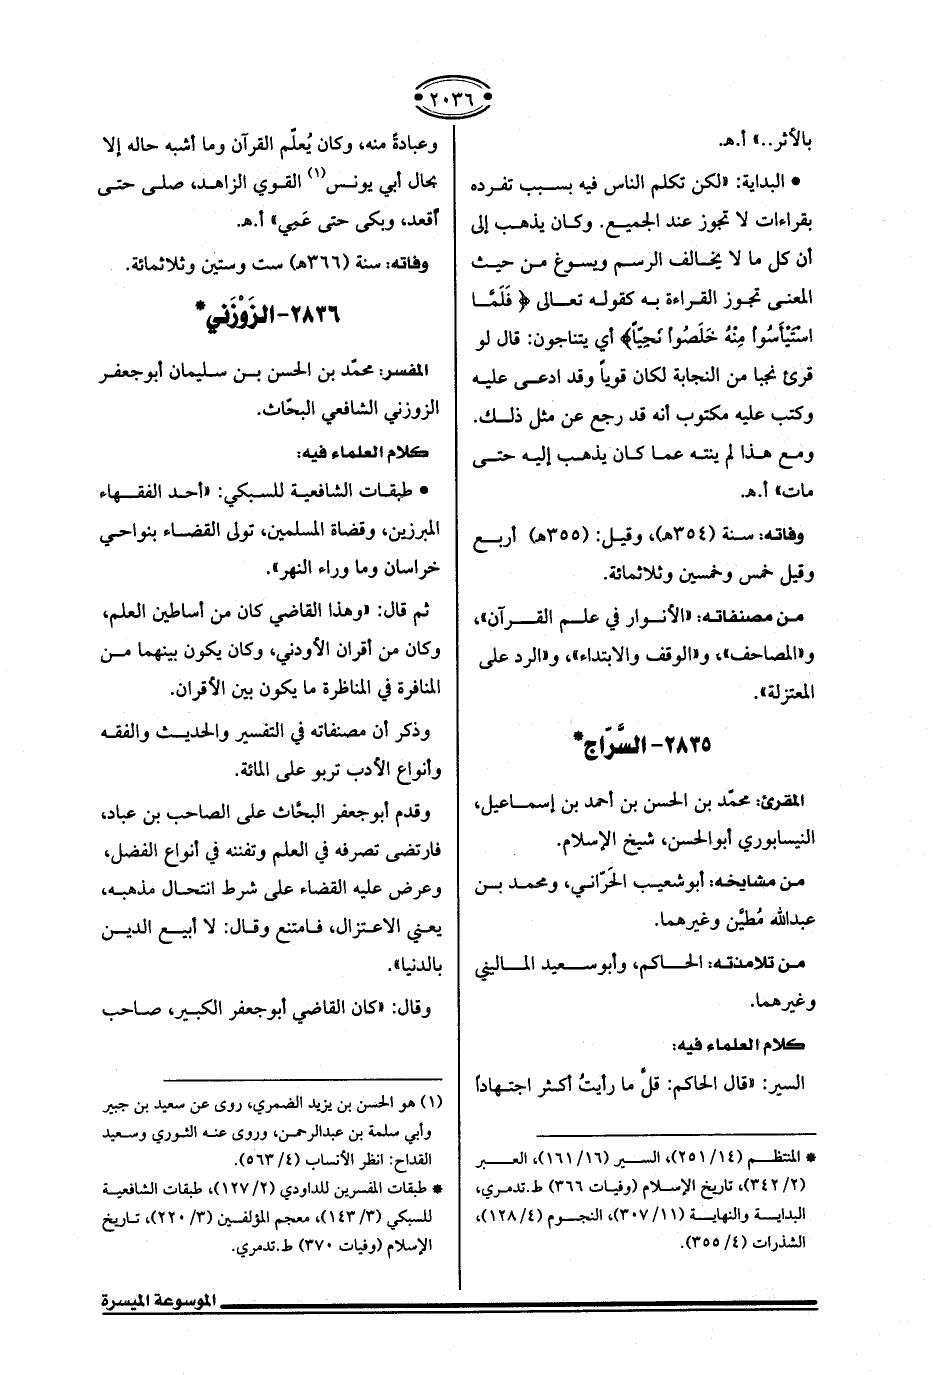 ٢٠٣٦
بالأثر..» أ.هـ.
• البداية: «لكن تكلم الناس فيه بسبب تفرده
بقراءات لا تجوز عند الجميع. وكان يذهب إلى
أن كل ما لا يخالف الرسم ويسوغ من حيث
المعنى تجوز القراءة به كقوله تعالى ﴿ فَلَمَّا
اسْتَيْأَسُواْ مِنْهُ خَلَصُواْ نَجِيّاً﴾ أي يتناجون: قال لو
قرئ نجبا من النجابة لكان قوياً وقد ادعى عليه
وكتب عليه مكتوب أنه قد رجع عن مثل ذلك.
ومع هذا لم ينته عما كان يذهب إليه حتى
مات» أ.هـ.
وفاته: سنة (٣٥٤هـ)، وقيل: (٣٥٥هـ) أربع
وقيل خمس وخمسين وثلاثمائة.
من مصنفاته: «الأنوار في علم القرآن»،
و«المصاحف»، و«الوقف والابتداء»، و«الرد على
المعتزلة».
٢٨٣٥- السَّرّاج*
المقرئ: محمّد بن الحسن بن أحمد بن إسماعيل،
النيسابوري أبوالحسن، شيخ الإسلام.
من مشايخه: أبوشعيب الحَرّاني، ومحمد بن
عبدالله مُطيَّن وغيرهما.
من تلامذته: الحاكم، وأبوسعيد الماليني
وغيرهما.
كلام العلماء فيه:
السير: «قال الحاكم: قلَّ ما رأيتُ أكثر اجتهاداً
* المنتظم (٢٥١/١٤)، السير (١٦١/١٦)، العبر
(٣٤٢/٢)، تاريخ الإسلام (وفيات ٣٦٦) ط.تدمري،
البداية والنهاية (٣٠٧/١١)، النجوم (١٢٨/٤)،
الشذرات (٣٥٥/٤).
وعبادةً منه، وكان يُعلّم القرآن وما أشبه حاله إلا
بحال أبي يونس(١) القوي الزاهد، صلى حتى
أقعد، وبكى حتى عَمِي» أ.هـ.
وفاته: سنة (٣٦٦هـ) ست وستين وثلاثمائة.
٢٨٣٦- الزَوْزَني*
المفسر: محمّد بن الحسن بن سليمان أبوجعفر
الزوزني الشافعي البحّاث.
كلام العلماء فيه:
• طبقات الشافعية للسبكي: «أحد الفقهاء
المبرزين، وقضاة المسلمين، تولى القضاء بنواحي
خراسان وما وراء النهر».
ثم قال: «وهذا القاضي كان من أساطين العلم،
وكان من أقران الأودني، وكان يكون بينهما من
المنافرة في المناظرة ما يكون بين الأقران.
وذكر أن مصنفاته في التفسير والحديث والفقه
وأنواع الأدب تربو على المائة.
وقدم أبوجعفر البحَّاث على الصاحب بن عباد،
فارتضى تصرفه في العلم وتفننه في أنواع الفضل،
وعرض عليه القضاء على شرط انتحال مذهبه،
يعني الاعتزال، فامتنع وقال: لا أبيع الدين
بالدنيا».
وقال: «كان القاضي أبوجعفر الكبير، صاحب
(١) هو الحسن بن يزيد الضمري، روى عن سعيد بن جبير
وأبي سلمة بن عبدالرحمن، وروى عنه الثوري وسعيد
القداح: انظر الأنساب (٥٦٣/٤).
* طبقات المفسرين للداودي (١٢٧/٢)، طبقات الشافعية
للسبكي (١٤٣/٣)، معجم المؤلفين (٢٢٠/٣)، تاريخ
الإسلام (وفيات ٣٧٠) ط.تدمري.
الموسوعة الميسرة